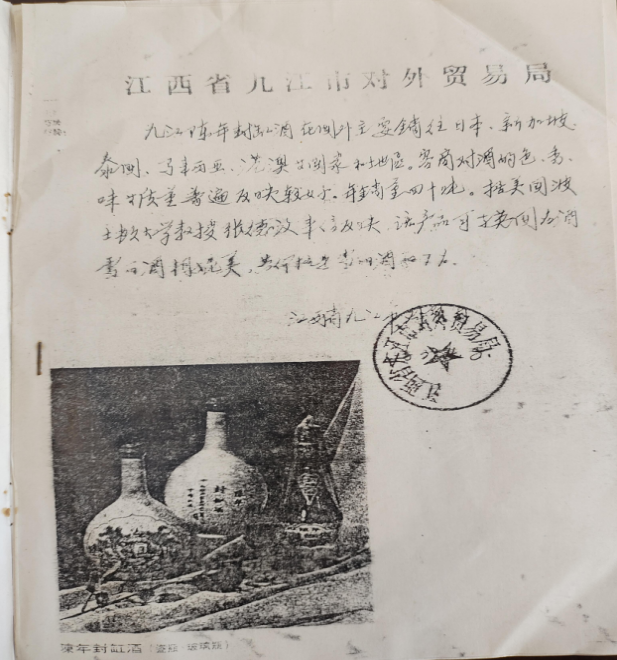 江西省九江市对外贸易局
九江陈年封缸酒在国外主要销往日本、新加坡、
泰国、马来西亚、港澳等国家和地区。客商对酒的色、香、
味等质量普遍反映较好。年销量四十吨。据美国波
士顿大学教授张德 来信反映,该产品可与英国名酒
酒相媲美
江西省九江市
江西省九江市对外贸易局
陈年封缸酒
陈年封缸酒(瓷瓶 玻璃瓶)